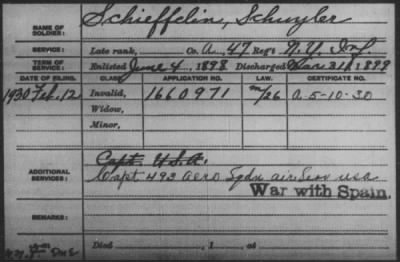 NAME OF SOLDIER: Schieffelin, Schuyler
SERVICE: Late rank, Co. A, 47 Reg't N.Y. Inf.
TERM OF SERVICE: Enlisted June 4, 1898 Discharged Mar 31, 1899
DATE OF FILING. CLASS. APPLICATION NO. LAW. CERTIFICATE NO.
1930 Feb. 12 Invalid, 1660971 m/26 a-5-10-30
Widow,
Minor,
ADDITIONAL SERVICES: Capt. U.S.A.
Capt 493 Aero Sqdn air Serv usa
War with Spain.
REMARKS:
Died , 1 , at